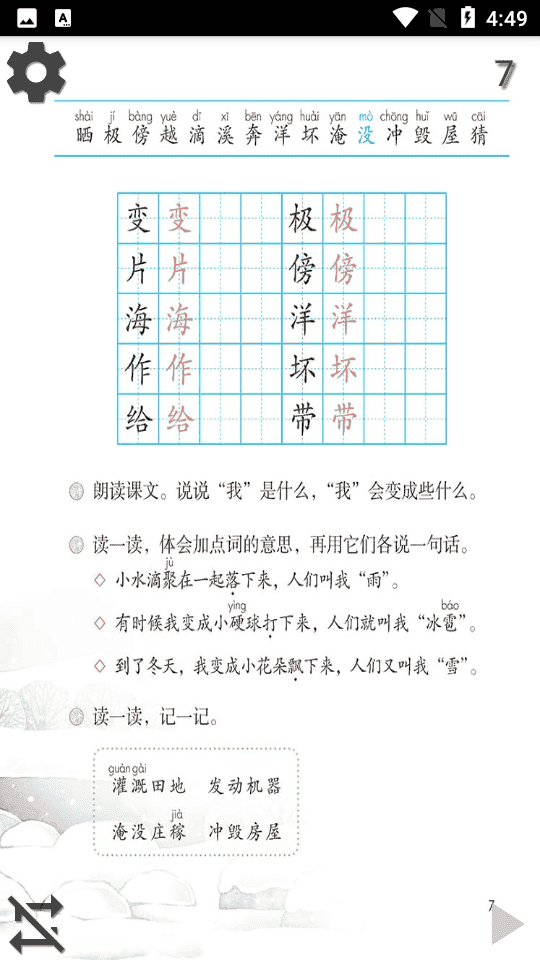 4:49
7
shài jí bàng yuè dī xī bēn yáng huài yān mò chōng huǐ wū cāi
晒 极 傍 越 滴 溪 奔 洋 坏 淹 没 冲 毁 屋 猜
变 变 极 极
片 片 傍 傍
海 海 洋 洋
作 作 坏 坏
给 给 带 带
朗读课文。说说“我”是什么，“我”会变成些什么。
读一读，体会加点词的意思，再用它们各说一句话。
jù
小水滴聚在一起落下来，人们叫我“雨”。
yìng báo
有时候我变成小硬球打下来，人们就叫我“冰雹”。
到了冬天，我变成小花朵飘下来，人们又叫我“雪”。
读一读，记一记。
guàn gài
灌溉田地 发动机器
jià
淹没庄稼 冲毁房屋
7